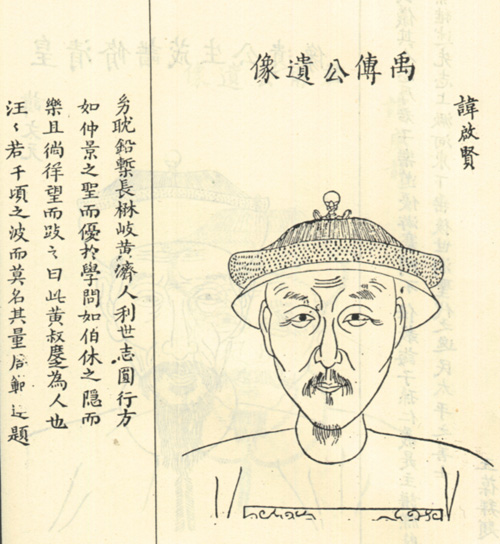 禹傳公遺像
諱啟賢
幼耽鉛槧長楙岐黃濟人利世志圓行方
如仲景之聖而優於學問如伯休之隱而
樂且徜徉望而跂之曰此黃叔度之為人也
汪々若千頃之波而莫名其量 範 題